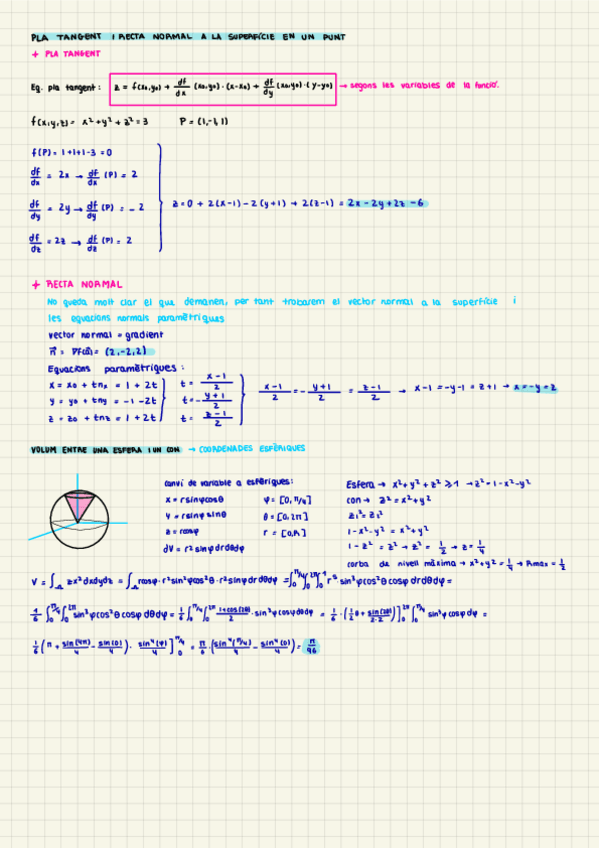 PLA TANGENT I RECTA NORMAL A LA SUPERFÍCIE EN UN PUNT
+ PLA TANGENT
Eq. pla tangent: z = f(x₀,y₀) + df/dx (x₀,y₀)·(x-x₀) + df/dy (x₀,y₀)·(y-y₀) → segons les variables de la funció.
f(x,y,z) = x²+y²+z²=3 P = (1,-1,1)
f(P) = 1+1+1-3 = 0
df/dx = 2x → df/dx (P) = 2
df/dy = 2y → df/dy (P) = -2
z = 0 + 2(x-1) - 2(y+1) + 2(z-1) = 2x - 2y + 2z - 6
df/dz = 2z → df/dz (P) = 2
+ RECTA NORMAL
No queda molt clar el que demanen, per tant trobarem el vector normal a la superfície i
les equacions normals paramètriques
vector normal = gradient
n⃗ = ∇f(a⃗) = (2,-2,2)
Equacions paramètriques:
x = x₀ + tnₓ = 1 + 2t t = x-1/2
y = y₀ + tnᵧ = -1 - 2t t = - y+1/2
z = z₀ + tn_z = 1 + 2t t = z-1/2
x-1/2 = - y+1/2 = z-1/2 → x-1 = -y-1 = z+1 → x = -y = z
VOLUM ENTRE UNA ESFERA I UN CON → COORDENADES ESFÈRIQUES
canvi de variable a esfèriques:
x = r sinφcosθ φ = [0, π/4]
y = r sinφ sinθ θ = [0, 2π]
z = rcosφ r = [0,R]
dV = r² sinφ dr dθ dφ
Esfera → x²+y²+z² ≥ 1 → z² = 1-x²-y²
con → z² = x²+y²
z₁² = z₂²
1-x²-y² = x²+y²
1-z² = z² → z² = 1/2 → z = 1/4
corba de nivell màxima → x²+y² = 1/4 → Rmax = 1/2
V = ∫ zx² dxdydz = ∫ rcosφ · r² sin²φcos²θ · r² sinφ dr dθ dφ = ∫₀^π/4 ∫₀^2π ∫₀^1 r⁵ sin³φcos²θ cosφ dr dθ dφ =
1/6 ∫₀^π/4 ∫₀^2π sin³φcos²θ cosφ dθ dφ = 1/6 ∫₀^π/4 ∫₀^2π 1+cos(2θ)/2 · sin³φ cosφ dθ dφ = 1/6 · (1/2 θ + sin(2θ)/2·2)]₀^2π ∫₀^π/4 sin³φ cosφ dφ =
1/6 (π + sin(4π)/4 - sin(0)/4) · sin⁴(φ)/4 ]₀^π/4 = π/6 · (sin⁴(π/4)/4 - sin⁴(0)/4) = π/96